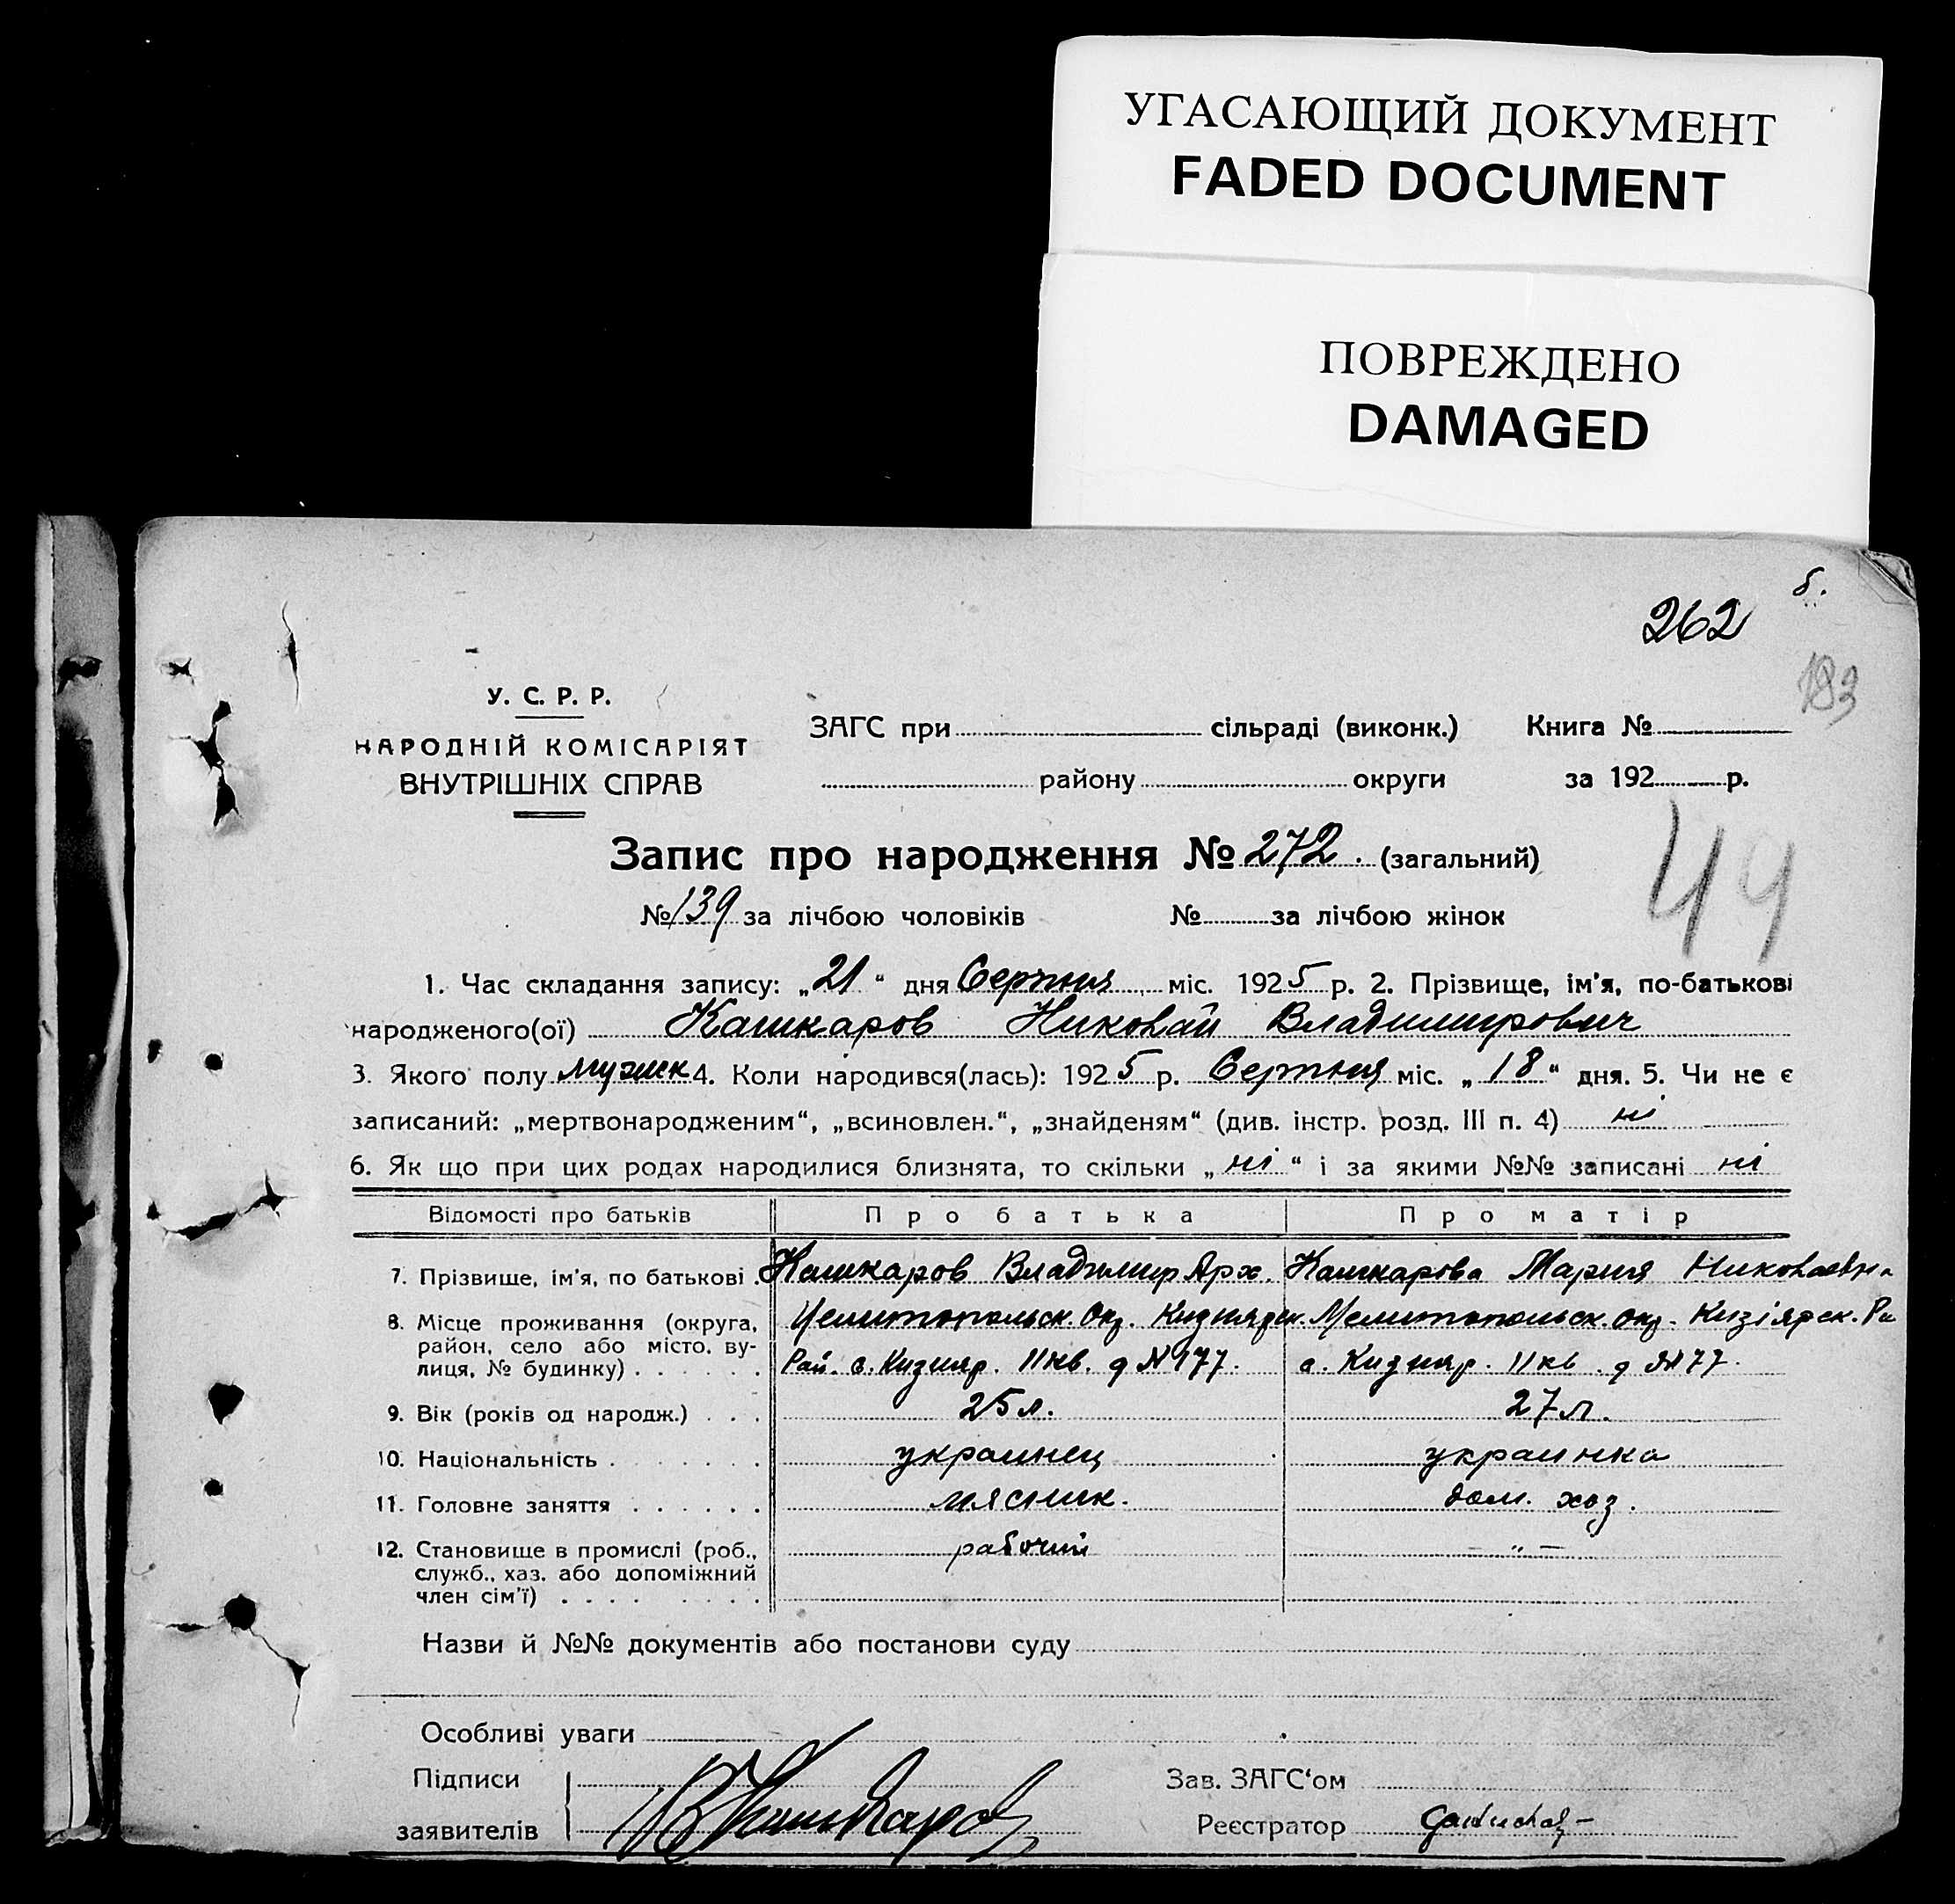 УГАСАЮЩИЙ ДОКУМЕНТ
FADED DOCUMENT
ПОВРЕЖДЕНО
DAMAGED
262
183
У. С. Р. Р.
НАРОДНІЙ КОМІСАРІЯТ
ВНУТРІШНІХ СПРАВ
ЗАГС при сільраді (виконк.) Книга №
району округи за 192 р.
Запис про народження № 272. (загальний)
44
№ 139 за лічбою чоловіків № за лічбою жінок
1. Час складання запису: „21“ дня Серпня міс. 1925 р. 2. Прізвище, ім'я, по-батькові
народженого(ої) Кашкаров Николай Владимирович
3. Якого полу мужск 4. Коли народився(лась): 1925 р. Серпня міс. „18“ дня. 5. Чи не є
записаний: „мертвонародженим“, „всиновлен.“, „знайденям“ (див. інстр. розд. III п. 4) ні
6. Як що при цих родах народилися близнята, то скільки „ні“ і за якими №№ записані ні
Відомості про батьків Про батька Про матір
7. Прізвище, ім'я, по батькові . Кашкаров Владимир Арх. Кашкарова Мария Николаевна
8. Місце проживання (округа, Мелитопольск. Окр. Кизиярск. Мелитопольск. окр. Кизіярск. Ра
район, село або місто, ву-
лиця, № будинку) . . . . . . Рай. с. Кизияр. 11 кв. д № 177. с. Кизияр. 11 кв. д № 177.
9. Вік (років од народж.) . . . 25 л. 27 л.
10. Національність . . . . . . . украинец украинка
11. Головне заняття . . . . . . мясник. дом. хоз.
12. Становище в промислі (роб., рабочий — „ —
служб., хаз. або допоміжний
член сім'ї) . . . . . . . .
Назви й №№ документів або постанови суду
Особливі уваги
Підписи Зав. ЗАГС‘ом
В Кашкаров
заявителів Реєстратор